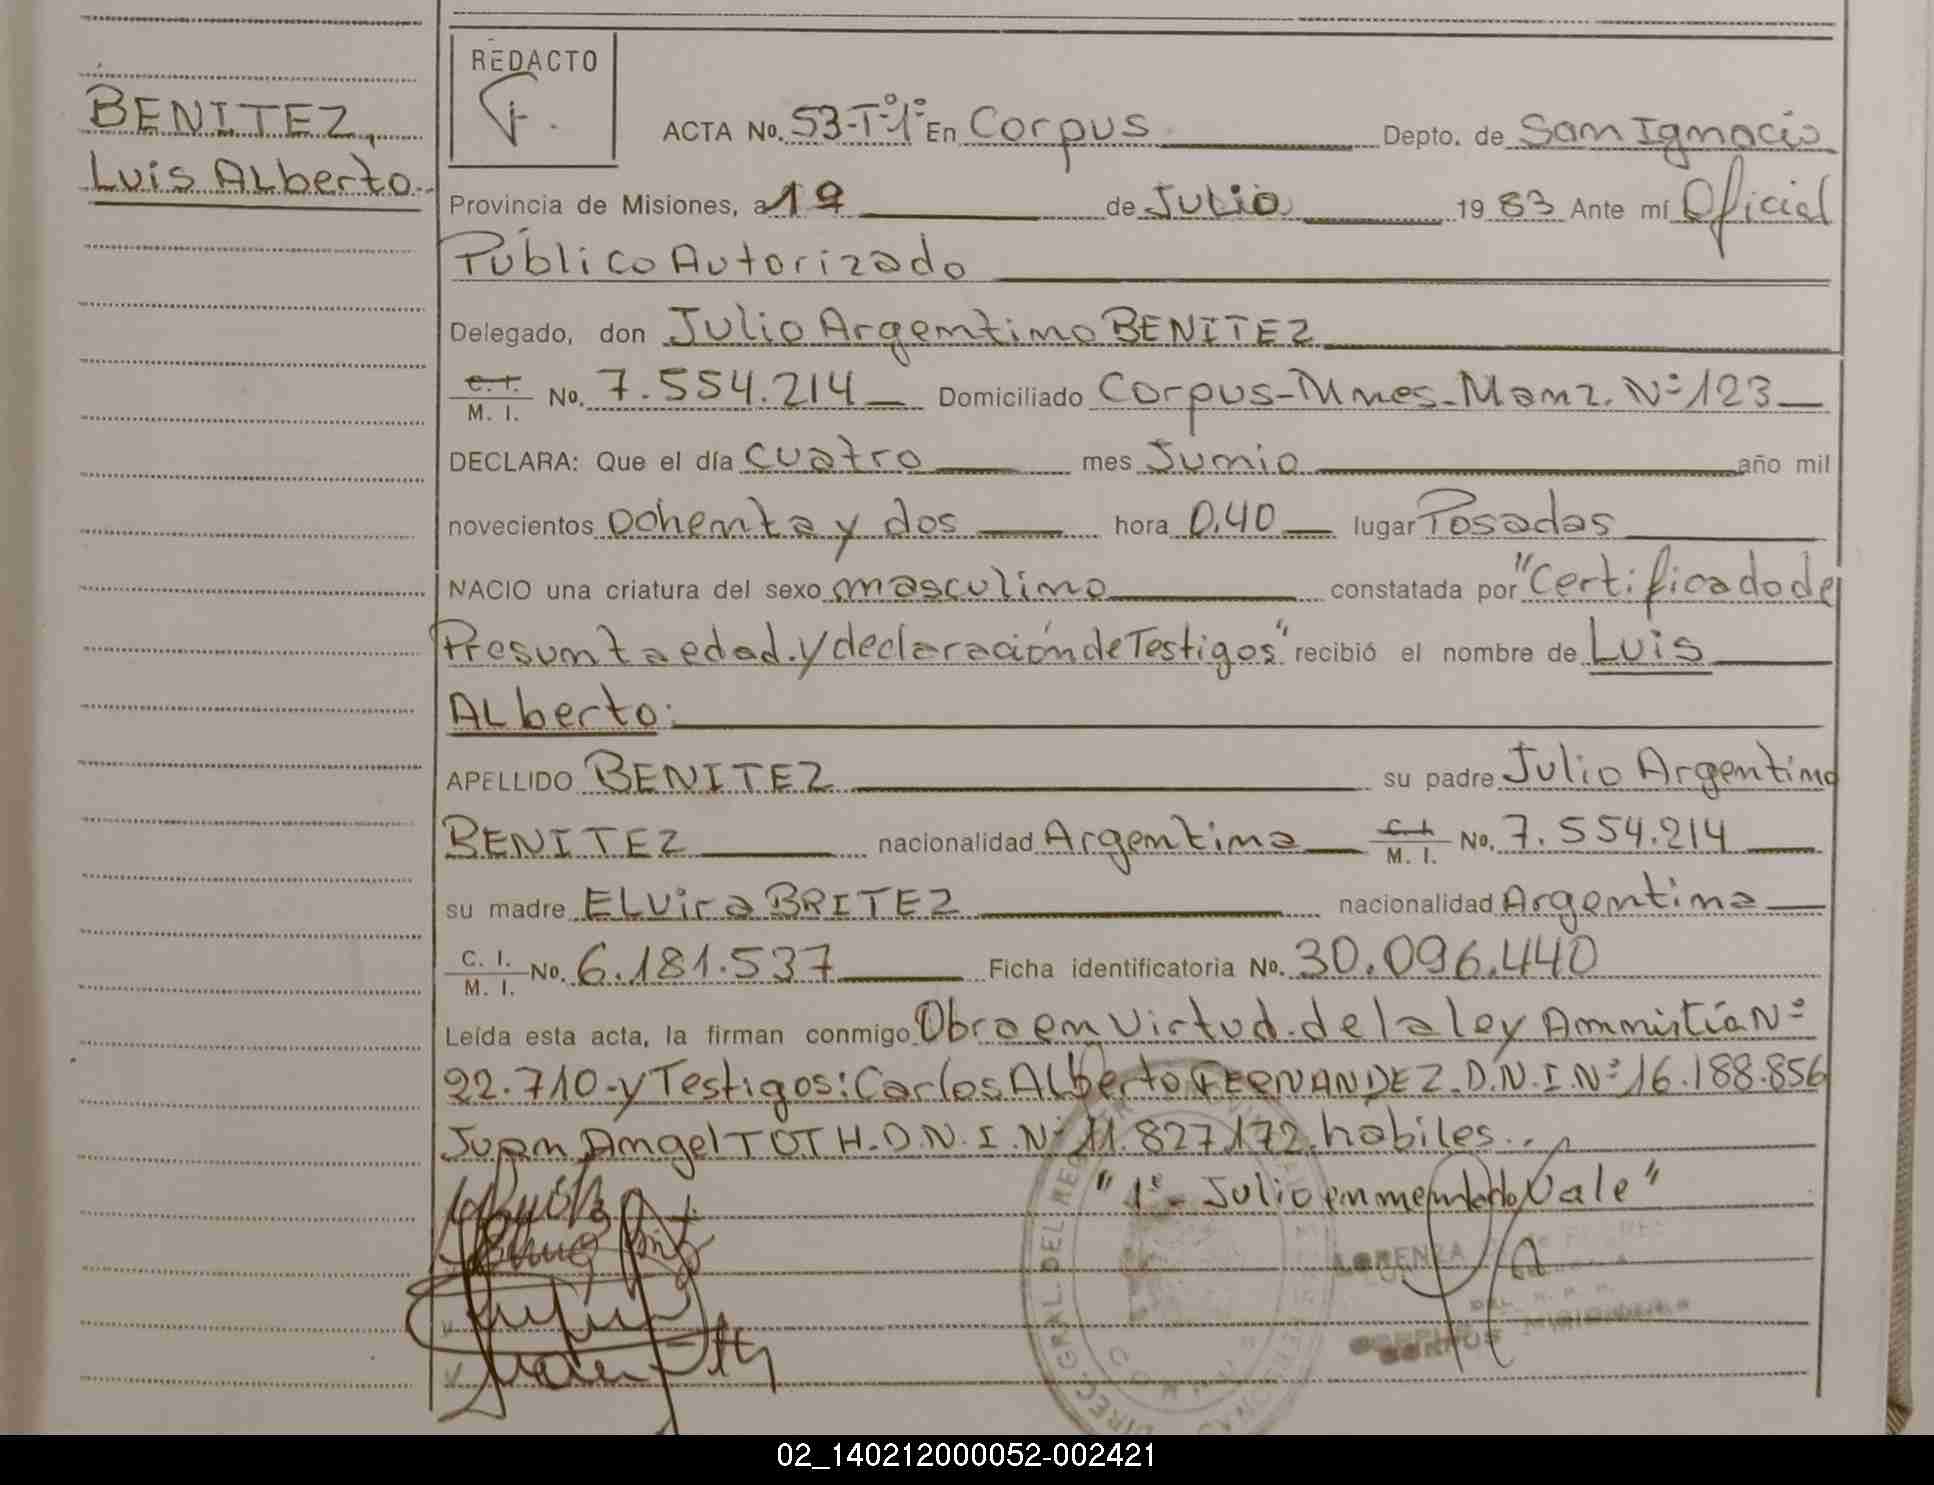 BENITEZ,
Luis ALberto.
REDACTO
ACTA No. 53-Tº1º En Corpus Depto. de San Ignacio
Provincia de Misiones, a 1º de Julio 1983 Ante mí Oficial
Público Autorizado
Delegado, don Julio Argentino BENITEZ
C. I. / M. I. No. 7.554.214 Domiciliado Corpus-Mnes-Manz. Nº 123
DECLARA: Que el día cuatro mes Junio año mil
novecientos ochenta y dos hora 0.40 lugar Posadas
NACIO una criatura del sexo masculino constatada por "Certificado de
Presunta edad.y declaración de Testigos" recibió el nombre de Luis
ALberto.
APELLIDO BENITEZ su padre Julio Argentino
BENITEZ nacionalidad Argentina C. I. / M. I. No. 7.554.214
su madre ELvira BRITEZ nacionalidad Argentina
C. I. / M. I. No. 6.181.537 Ficha identificatoria No. 30.096.440
Leída esta acta, la firman conmigo Obra en Virtud.de la ley Ammistía Nº
22.710-y Testigos: Carlos ALberto FERNANDEZ.D.N.I.Nº 16.188.856
Juan Angel TOTH.D.N.I.Nº 11.827.172.habiles..
"1º- Julio enmendado Vale"
LORENZA
CORPUS MISIONES
DIREC. GRAL. DEL REG
02_140212000052-002421